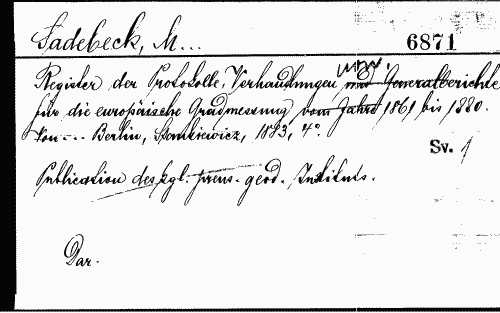 Sadebeck, M... 6871
usw.
Register der Protokolle, Verhandlungen und Generalberichte
für die europäische Gradmessung vom Jahre 1861 bis 1880.
Von --- Berlin, Stankiewicz, 1883, 4°.
Sv. 1
Publication des kgl. preus. geod. Instituts.
Dar.